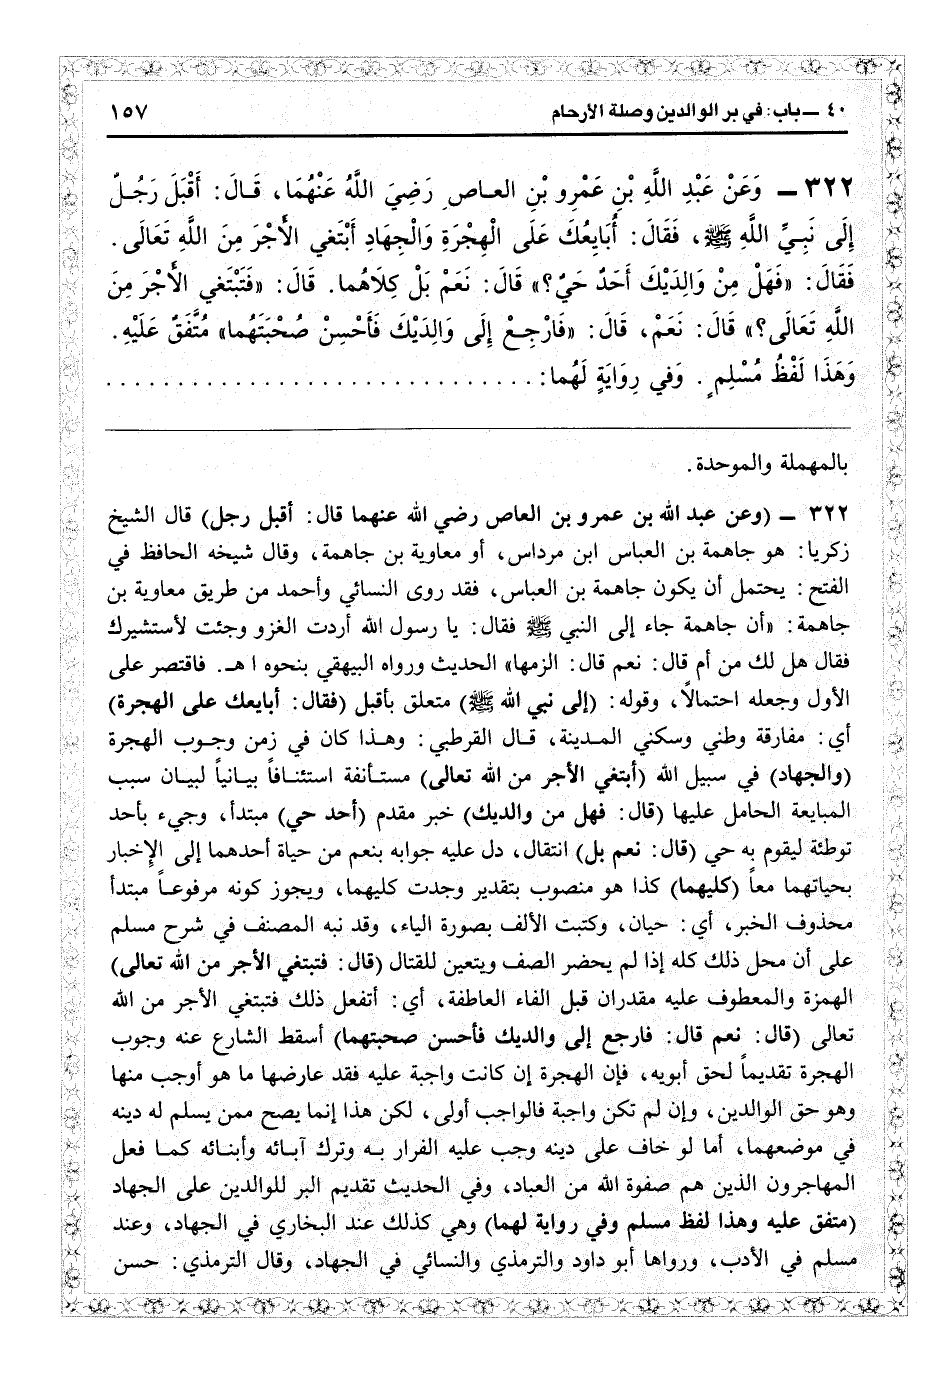 ٤٠ ــ باب: في بر الوالدين وصلة الأرحام ١٥٧
٣٢٢ ــ وَعَنْ عَبْدِ اللَّهِ بْنِ عَمْرِو بْنِ العـاصِ رَضِيَ اللَّهُ عَنْهُمَا، قَـالَ: أَقْبَلَ رَجُـلٌ
إِلَى نَبِـيِّ اللَّهِ ﷺ، فَقَالَ: أُبَايِعُكَ عَلَى الْهِجْرَةِ وَالْجِهَادِ أَبْتَغي الأَجْرَ مِنَ اللَّهِ تَعَالَى.
فَقَالَ: «فَهَلْ مِنْ وَالِدَيْكَ أَحَدٌ حَيٌّ؟» قَالَ: نَعَمْ بَلْ كِلاَهُما. قَالَ: «فَتَبْتَغي الأَجْرَ مِنَ
اللَّهِ تَعَالَى؟» قَالَ: نَعَمْ، قَالَ: «فَارْجِعْ إِلَى وَالِدَيْكَ فَأَحْسِنْ صُحْبَتَهُما» مُتَّفَقٌ عَلَيْهِ.
وَهَذَا لَفْظُ مُسْلِمٍ. وَفي رِوَايَةٍ لَهُما: . . . . . . . . . . . . . . . . . . . . . . . . . . . . . .
بالمهملة والموحدة.
٣٢٢ ــ (وعن عبد الله بن عمرو بن العاص رضي الله عنهما قال: أقبل رجل) قال الشيخ
زكريا: هو جاهمة بن العباس ابن مرداس، أو معاوية بن جاهمة، وقال شيخه الحافظ في
الفتح: يحتمل أن يكون جاهمة بن العباس، فقد روى النسائي وأحمد من طريق معاوية بن
جاهمة: «أن جاهمة جاء إلى النبي ﷺ فقال: يا رسول الله أردت الغزو وجئت لأستشيرك
فقال هل لك من أم قال: نعم قال: الزمها» الحديث ورواه البيهقي بنحوه ا هـ. فاقتصر على
الأول وجعله احتمالاً، وقوله: (إلى نبي الله ﷺ) متعلق بأقبل (فقال: أبايعك على الهجرة)
أي: مفارقة وطني وسكني المـدينة، قـال القرطبي: وهـذا كان في زمن وجـوب الهجرة
(والجهاد) في سبيل الله (أبتغي الأجر من الله تعالى) مستـأنفة استئنـافاً بيـانياً لبيـان سبب
المبايعة الحامل عليها (قال: فهل من والديك) خبر مقدم (أحد حي) مبتدأ، وجيء بأحد
توطئة ليقوم به حي (قال: نعم بل) انتقال، دل عليه جوابه بنعم من حياة أحدهما إلى الإخبار
بحياتهما معاً (كليهما) كذا هو منصوب بتقدير وجدت كليهما، ويجوز كونه مرفوعـاً مبتدأ
محذوف الخبر، أي: حيان، وكتبت الألف بصورة الياء، وقد نبه المصنف في شرح مسلم
على أن محل ذلك كله إذا لم يحضر الصف ويتعين للقتال (قال: فتبتغي الأجر من الله تعالى)
الهمزة والمعطوف عليه مقدران قبل الفاء العاطفة، أي: أتفعل ذلك فتبتغي الأجر من الله
تعالى (قال: نعم قال: فارجع إلى والديك فأحسن صحبتهما) أسقط الشارع عنه وجوب
الهجرة تقديماً لحق أبويه، فإن الهجرة إن كانت واجبة عليه فقد عارضها ما هو أوجب منها
وهو حق الوالدين، وإن لم تكن واجبة فالواجب أولى، لكن هذا إنما يصح ممن يسلم له دينه
في موضعهما، أما لو خاف على دينه وجب عليه الفرار بـه وترك آبـائه وأبنـائه كمـا فعل
المهاجرون الذين هم صفوة الله من العباد، وفي الحديث تقديم البر للوالدين على الجهاد
(متفق عليه وهذا لفظ مسلم وفي رواية لهما) وهي كذلك عند البخاري في الجهاد، وعند
مسلم في الأدب، ورواها أبو داود والترمذي والنسائي في الجهاد، وقال الترمذي: حسن